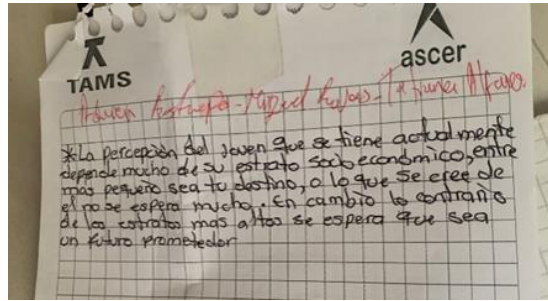 TAMS
ascer
Restrepo - Miguel Rojas - Tatiana Alfaro.
*La percepción del joven que se tiene actualmente
depende mucho de su estrato socioeconómico, entre
más pequeño sea tu destino, o lo que se cree de
el no se espera mucho. En cambio lo contrario
de los estratos mas altos se espera que sea
un futuro prometedor